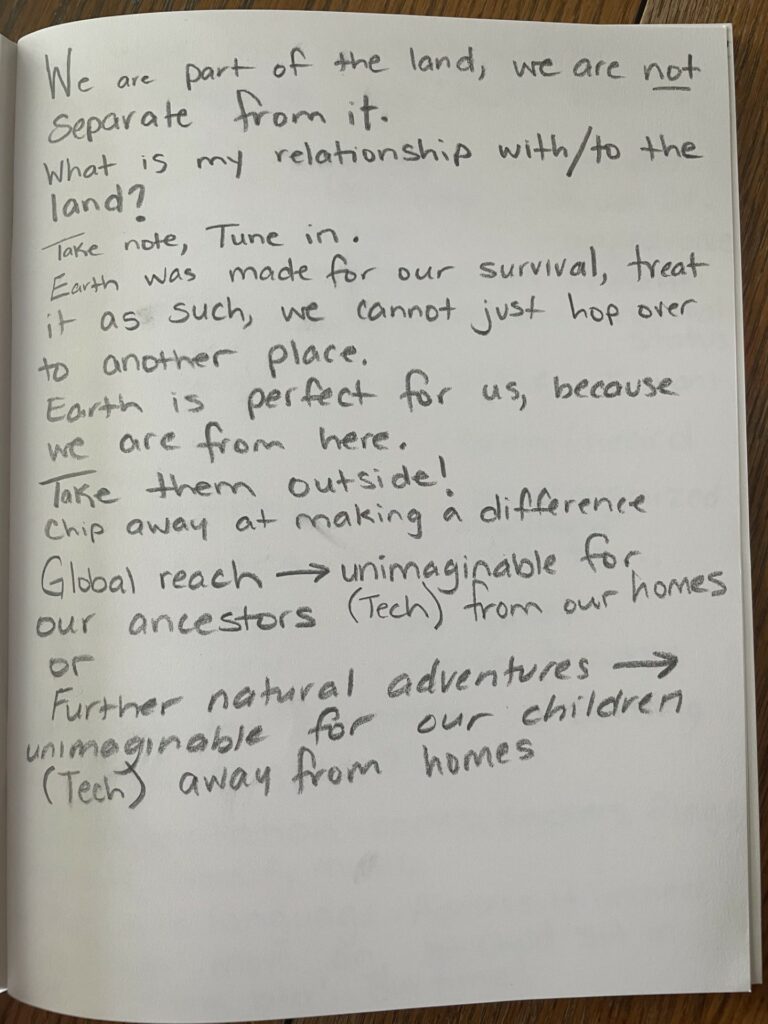 We are part of the land, we are not
separate from it.
What is my relationship with/to the
land?
Take note, Tune in.
Earth was made for our survival, treat
it as such, we cannot just hop over
to another place.
Earth is perfect for us, because
we are from here.
Take them outside!
Chip away at making a difference
Global reach → unimaginable for
our ancestors (Tech) from our homes
or
Further natural adventures →
unimaginable for our children
(Tech) away from homes